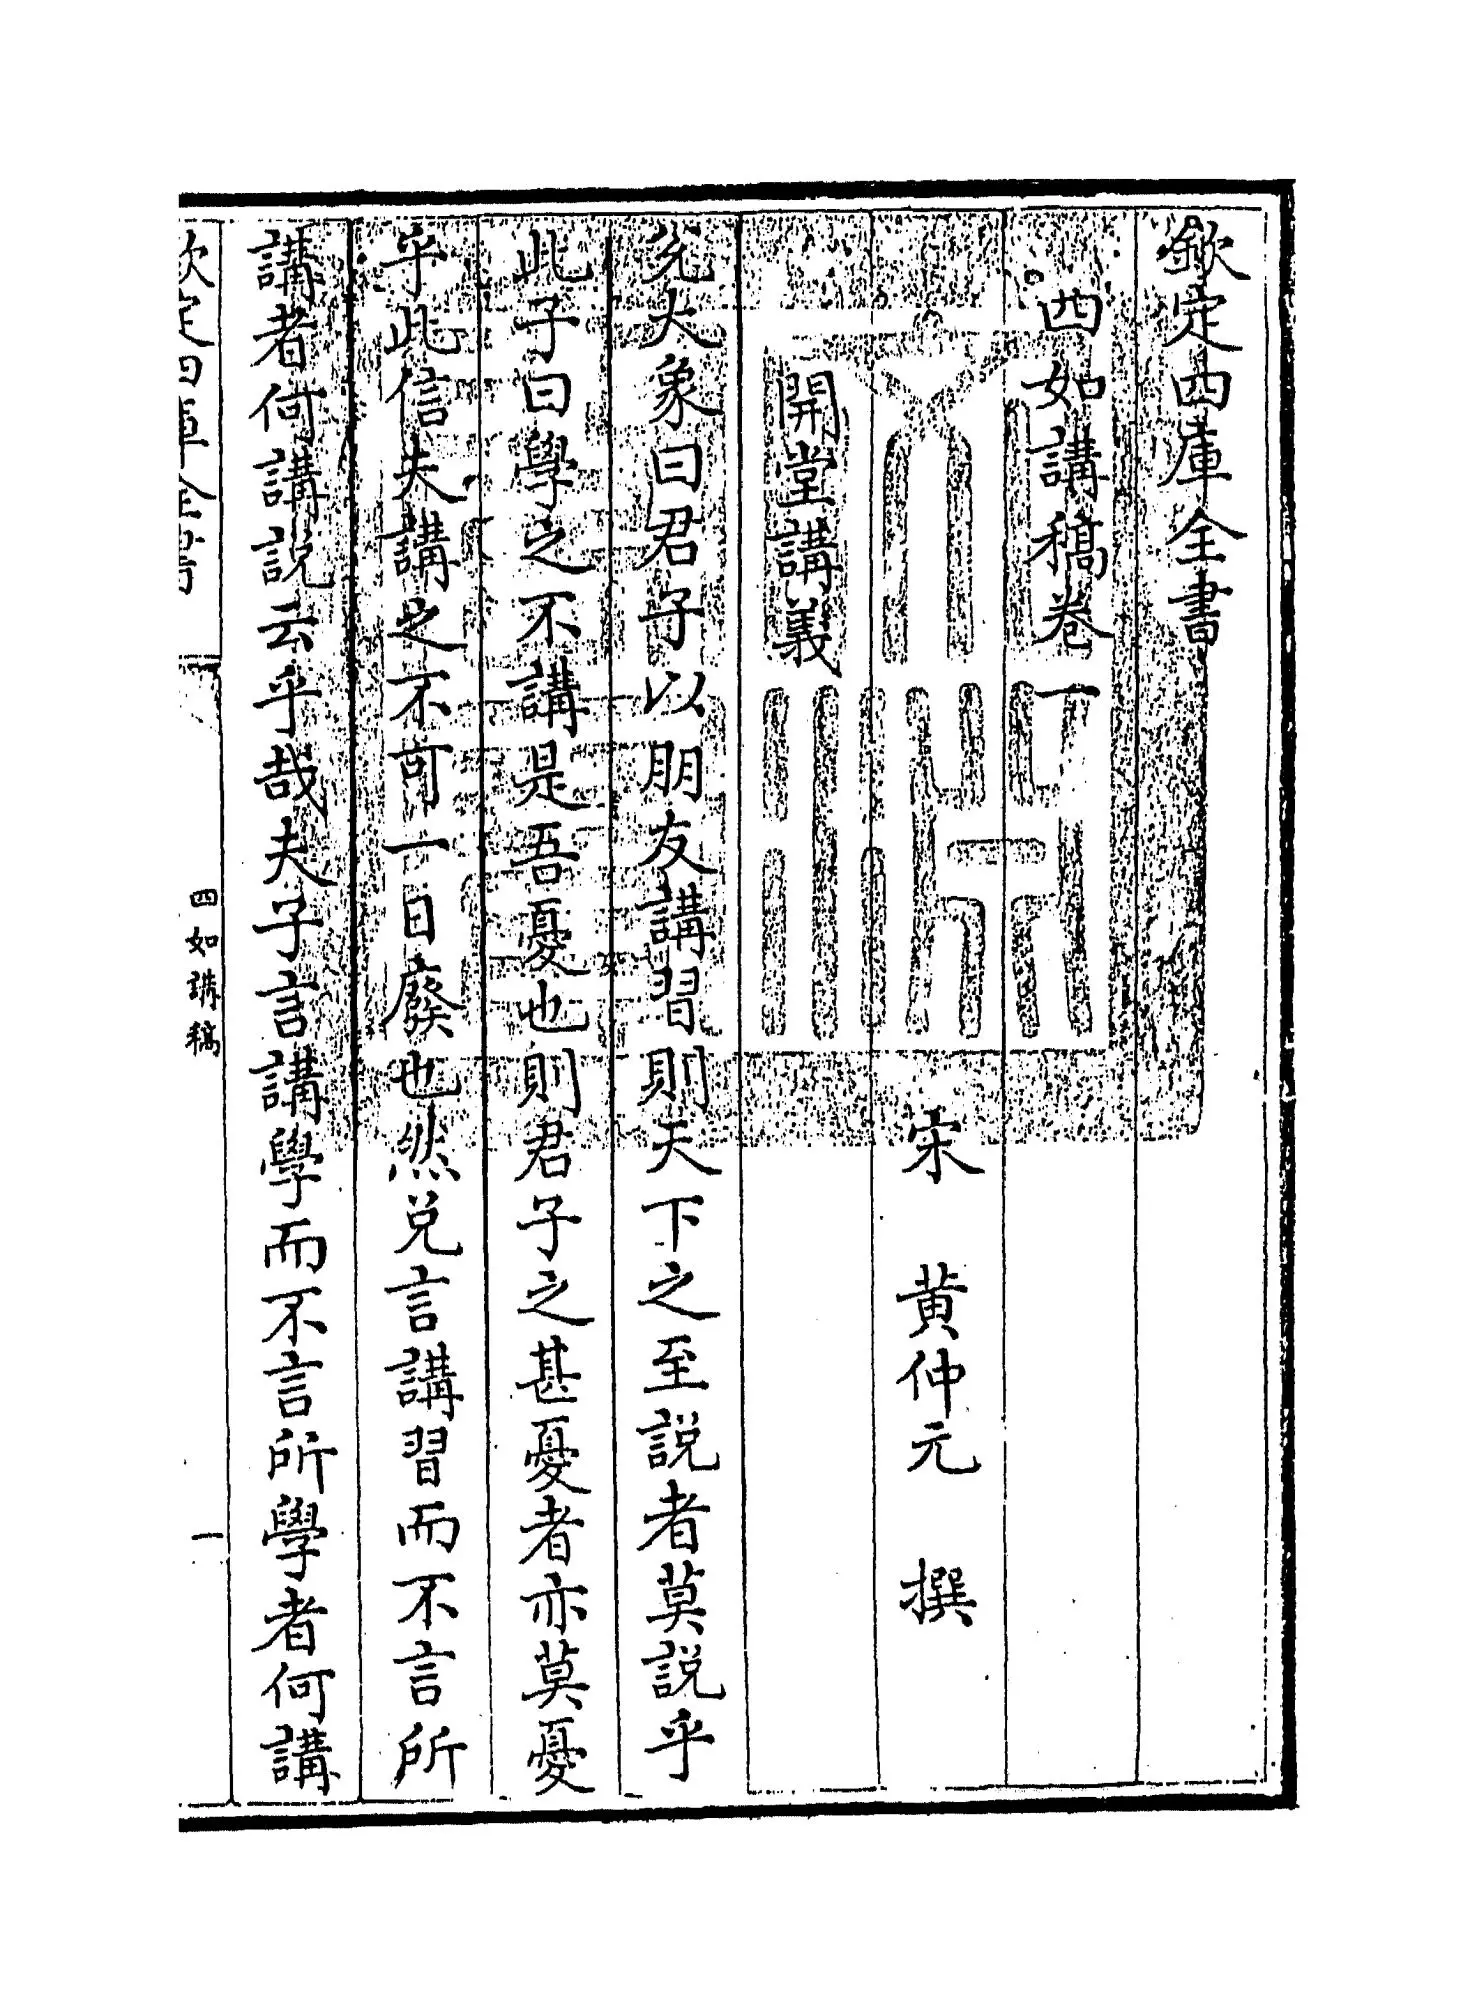 欽定四庫全書
四如講稿卷一
宋 黃仲元 撰
開堂講義
兌大象曰君子以朋友講習則天下之至説者莫説乎
此子曰學之不講是吾憂也則君子之甚憂者亦莫憂
乎此信夫講之不可一日廢也然兌言講習而不言所
講者何講説云乎哉夫子言講學而不言所學者何講
欽定四庫全書
四如講稿
一